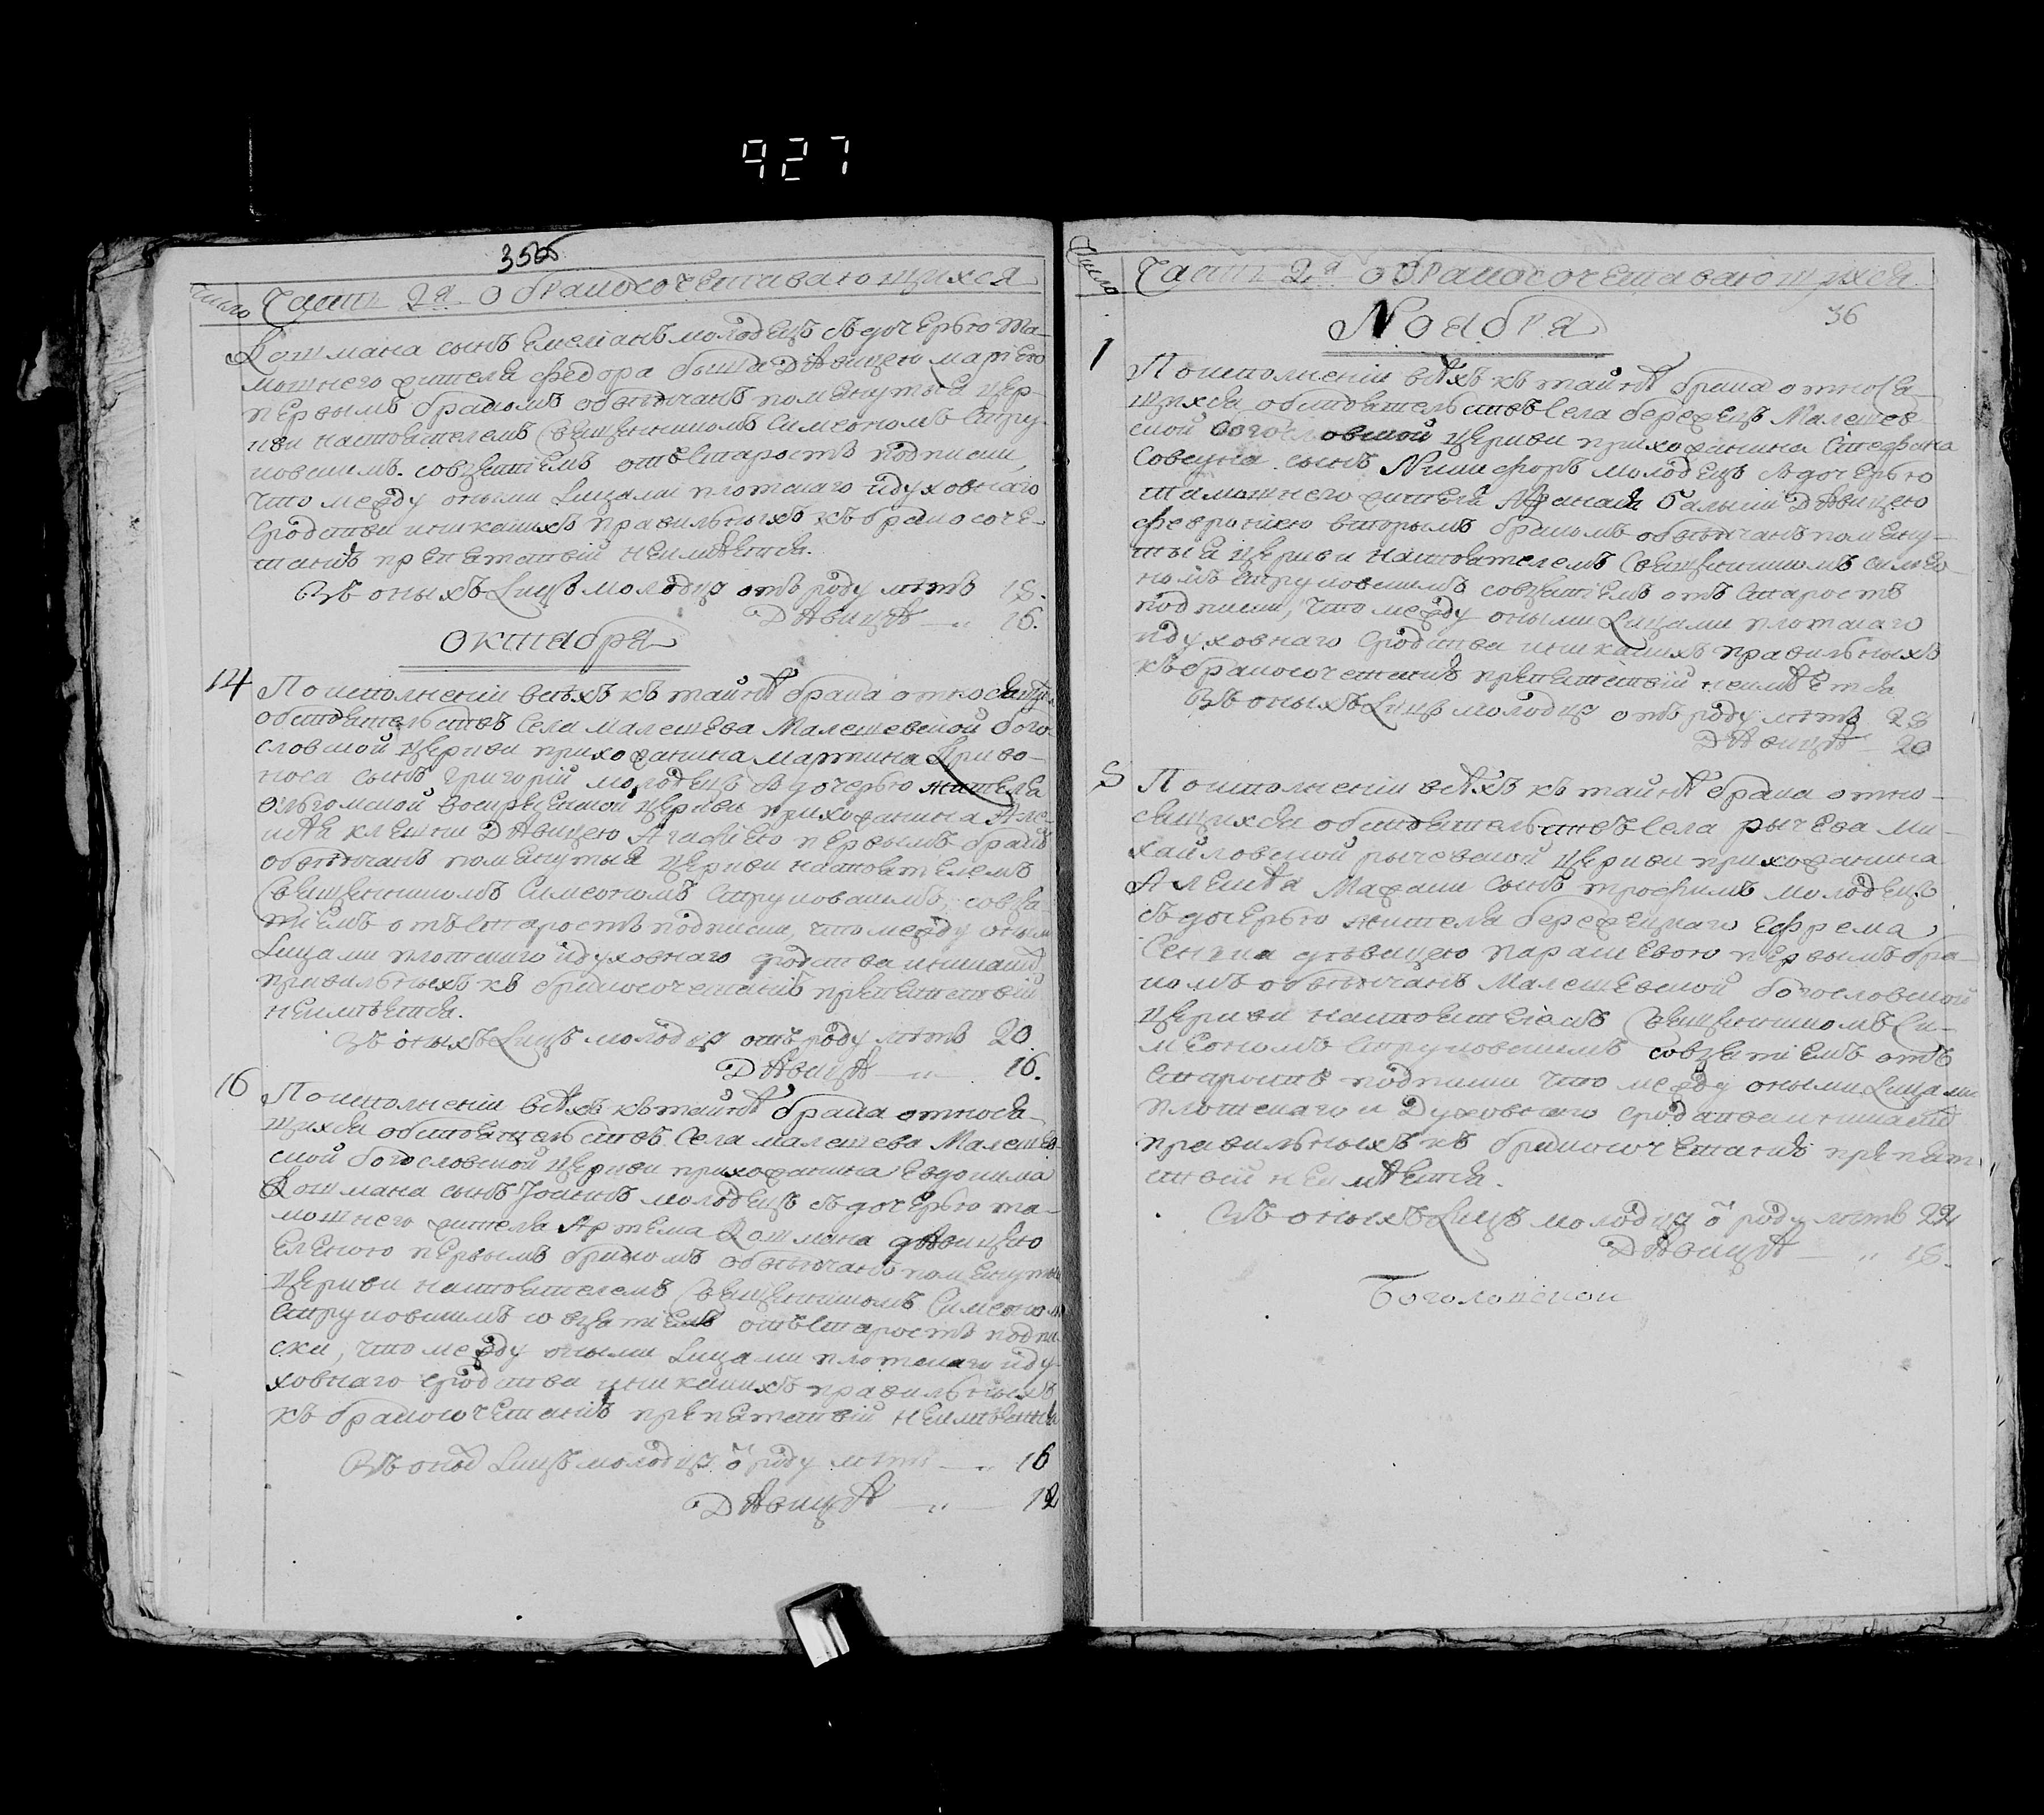 927
355
Число Часть 2я о бракосочетавающихся
Кошмана сынъ Емелiанъ молодецъ съ дочерью та-
мошнего жителя Федора дѣвицею Марiею
первымъ бракомъ обвѣнчанъ помянутыя цер-
кви настоятелемъ священникомъ Симеономъ Стру-
ковскимъ совзятiемъ отъ старостъ подписки,
что между оными лицами плотскаго и духовнаго
сродства и никакихъ правильныхъ къ бракосоче-
танiю препятствiй неимѣется.
Въ оныхъ лицъ молодцу отъ роду лѣтъ 18.
Дѣвицѣ — " 16.
Октября
14 По исполненiи всѣхъ къ тайнѣ брака относящихся
обстоятельствъ села Малешева Малешевской бого-
словской церкви прихожанина Мартина Криво-
носа сынъ Григорiй молодецъ съ дочерью жителя
Ольгомской воскресенской церкви прихожанина Але-
ксѣя дѣвицею Агафiею первымъ бракомъ
обвѣнчанъ помянутыя церкви настоятелемъ
священникомъ Симеономъ Струковскимъ, совзя-
тiемъ отъ старостъ подписки, что между оными
лицами плотскаго и духовнаго сродства и никакихъ
правильныхъ къ бракосочетанiю препятствiй
неимѣется.
Въ оныхъ лицъ молодцу отъ роду лѣтъ 20
Дѣвицѣ — " — 16.
16 По исполненiи всѣхъ къ тайнѣ брака относя-
щихся обстоятельствъ села Малешева Малешев-
ской богословской церкви прихожанина Евдокима
Кошмана сынъ Iоаннъ молодецъ съ дочерью та-
мошнего жителя Артема Кошмана дѣвицею
Еленою первымъ бракомъ обвѣнчанъ помянутыя
церкви настоятелемъ священникомъ Симеономъ
Струковскимъ со взятiемъ отъ старостъ подпи-
ски, что между оными лицами плотскаго и ду-
ховнаго сродства и никакихъ правильныхъ
къ бракосочетанiю препятствiй неимѣется
Въ оныхъ лицъ молодцу о роду лѣтъ — " 16
Дѣвицѣ — " — 12
Число Часть 2я о бракосочетавающихся
36
Ноября
1 По исполненiи всѣхъ къ тайнѣ брака относя-
щихся обстоятельствъ села Бережецъ Малешев-
ской богословской церкви прихожанина Стефана
сынъ Никифоръ молодецъ съ дочерью
тамошнего жителя Афанасiя дѣвицею
Феврониею вторымъ бракомъ обвѣнчанъ помяну-
тыя церкви настоятелемъ священникомъ Симео-
номъ Струковскимъ совзятiемъ отъ старостъ
подписки, что между оными лицами плотскаго
и духовнаго сродства и никакихъ правильныхъ
къ бракосочетанiю препятствiй неимѣется
Въ оныхъ лицъ молодцу отъ роду лѣтъ 28
Дѣвицѣ — 20
По исполненiи всѣхъ къ тайнѣ брака отно-
сящихся обстоятельствъ села Рычева Ми-
хайловской Рычевской церкви прихожанина
Алексѣя сынъ Трофимъ молодецъ
съ дочерью жителя Бережецкаго Ефрема
дѣвицею Параскевою первымъ бра-
комъ обвѣнчанъ Малешевской богословской
церкви настоятелемъ священникомъ Си-
меономъ Струковскимъ совзятiемъ отъ
старостъ подписки что между оными лицами
плотскаго и духовнаго сродства и никакихъ
правильныхъ къ бракосочетанiю препят-
ствiй неимѣется.
Въ оныхъ лицъ молодцу о роду лѣтъ 22
Дѣвицѣ — " 18.